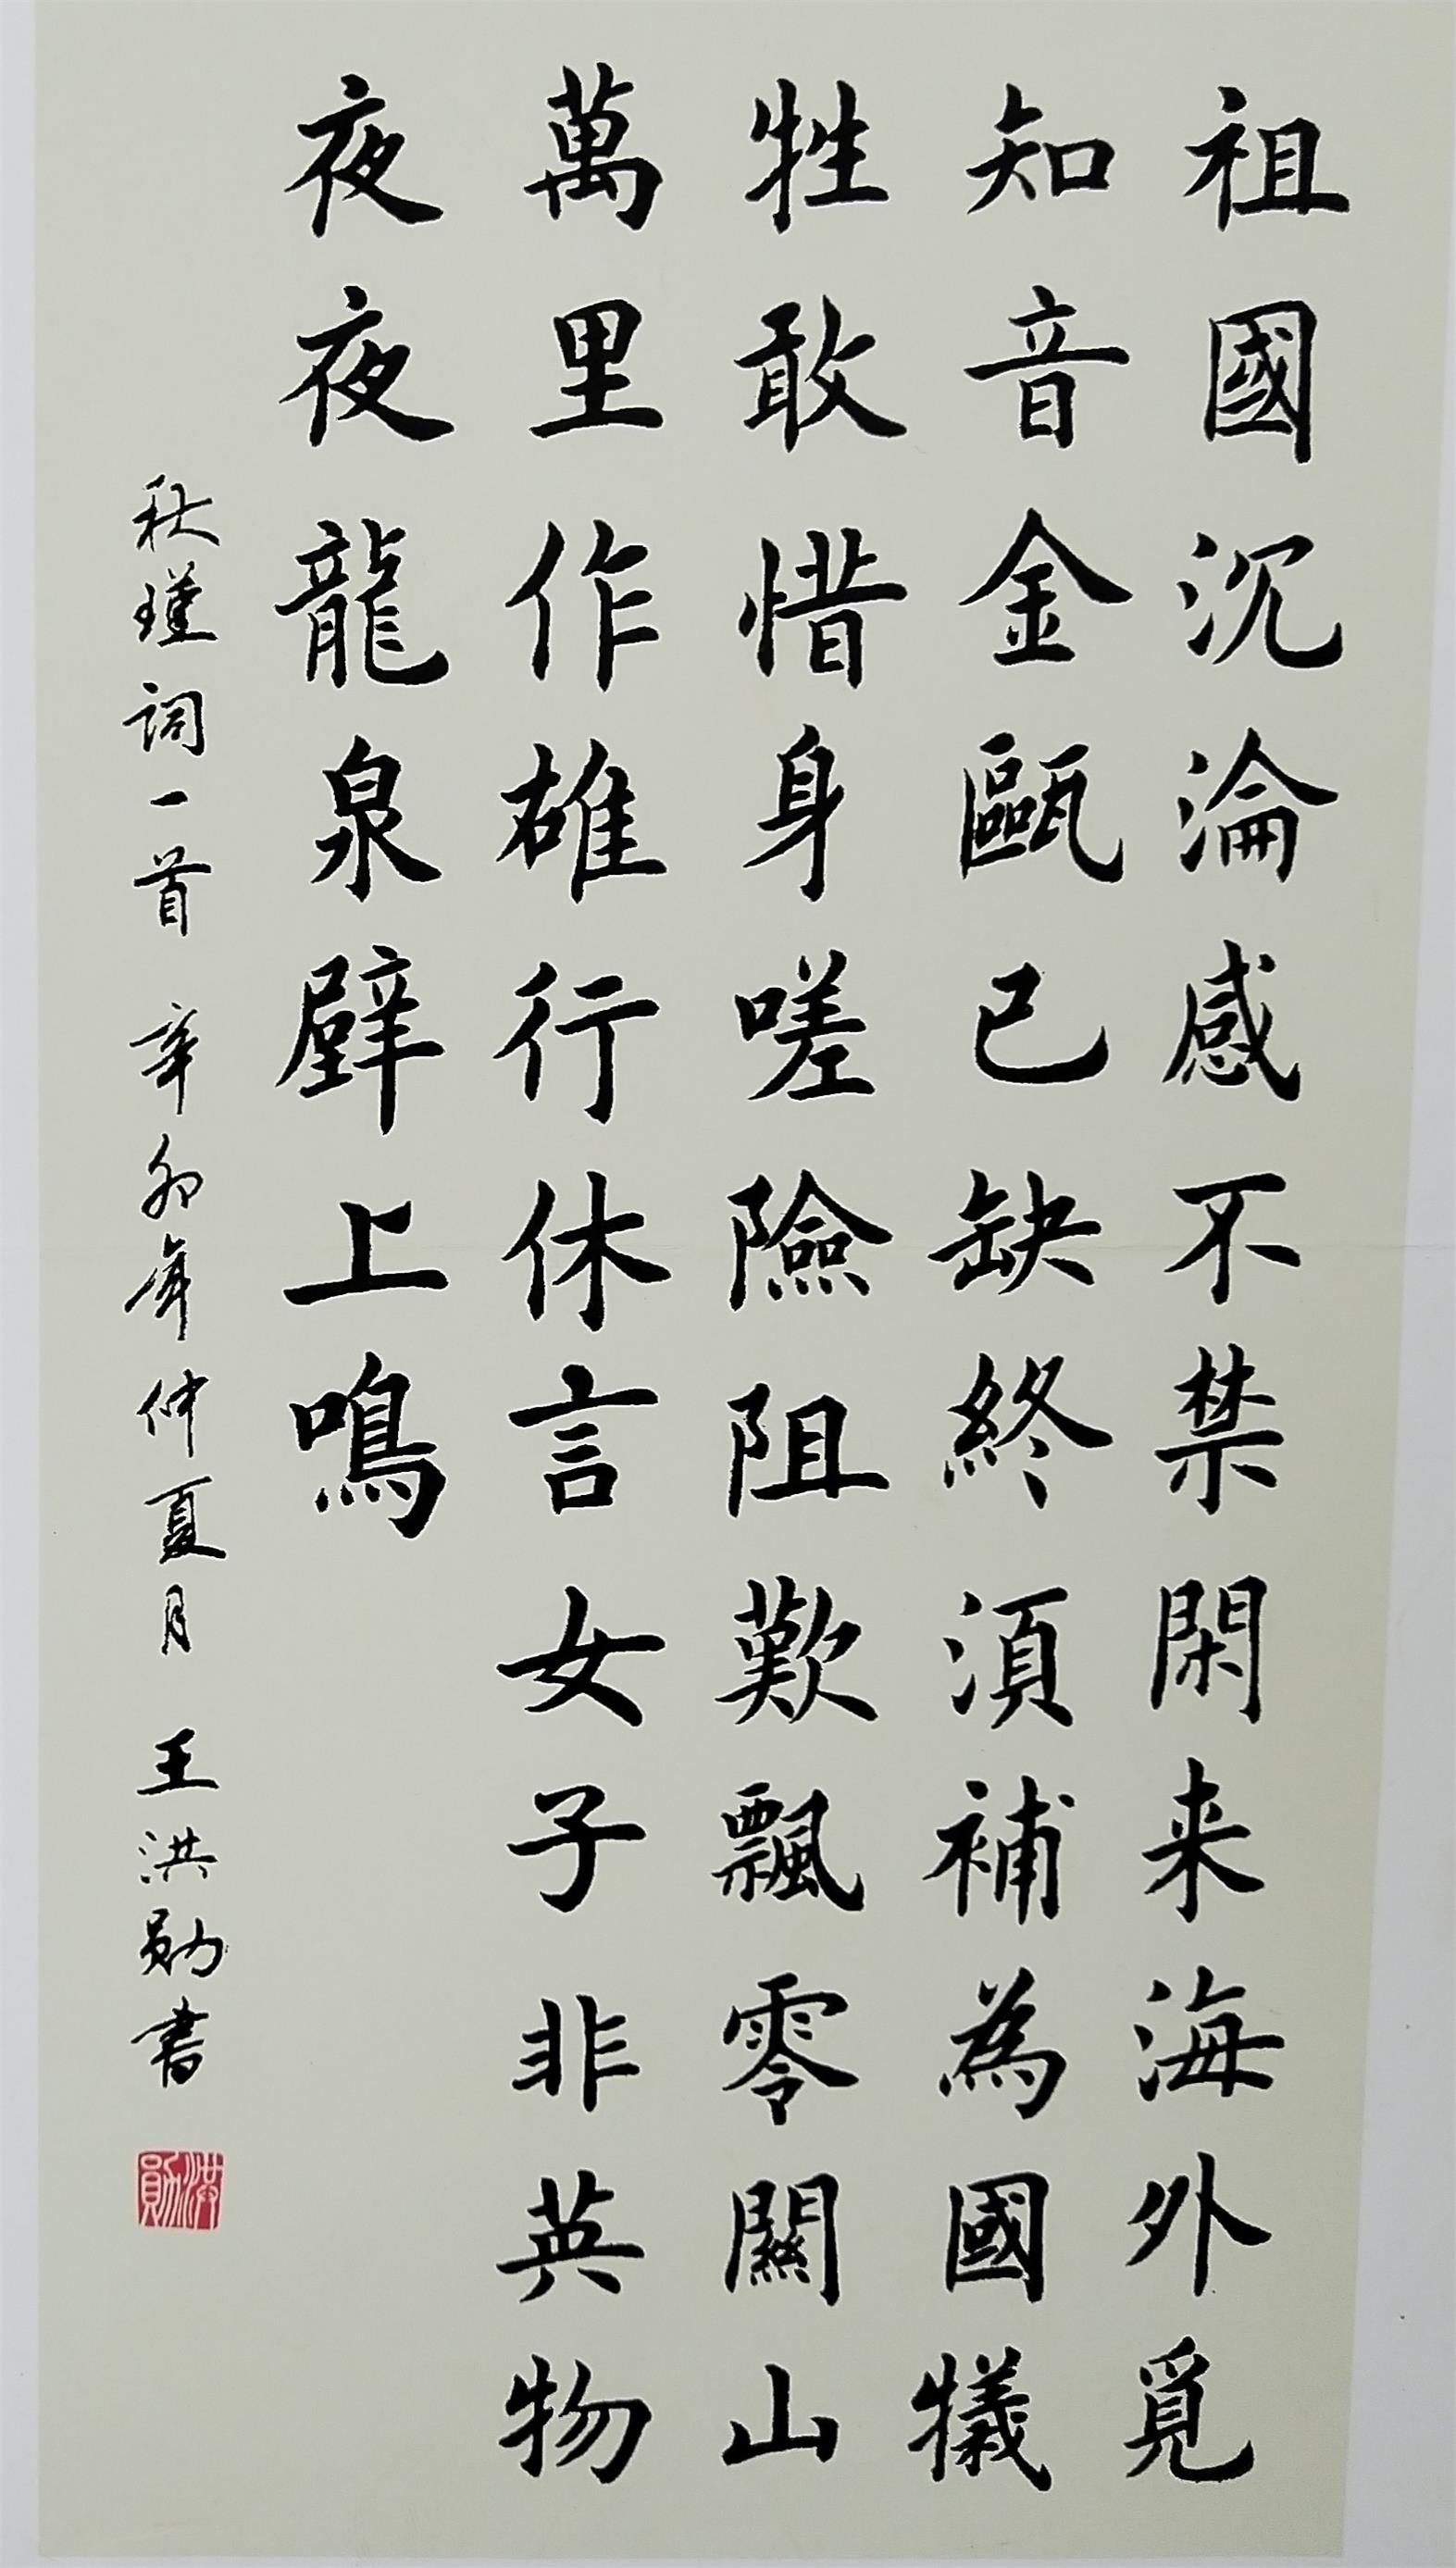 祖國沉淪感不禁閑来海外覓
知音金甌已缺終須補為國犠
牲敢惜身嗟險阻歎飄零關山
萬里作雄行休言女子非英物
夜夜龍泉壁上鳴
秋瑾詞一首 辛卯年仲夏月 王洪勋書
洪勛